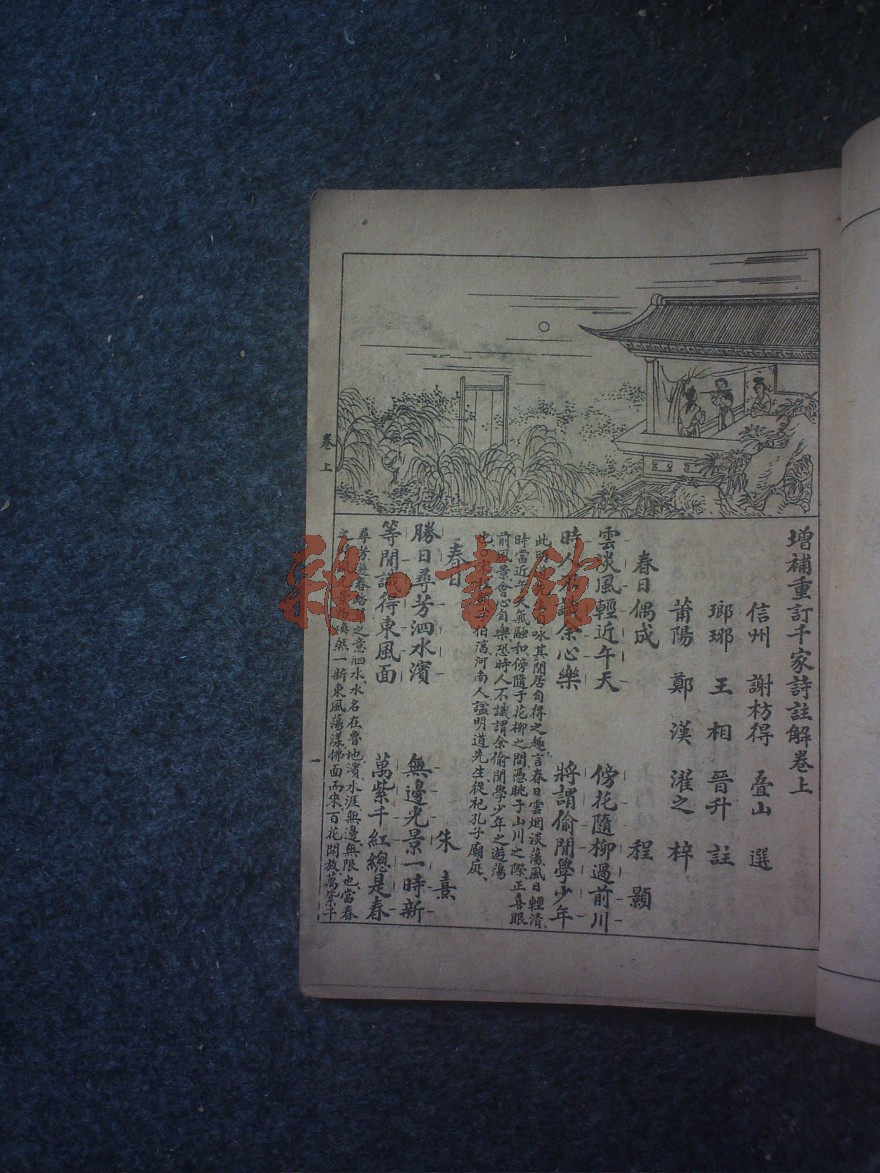 增補重訂千家詩註解卷上
信州 謝枋得 叠山 選
瑯琊 王相 晉升 註
莆陽 鄭漢 濯之 梓
春日偶成 程顥
雲淡風輕近午天 傍花隨柳過前川
時人不識余心樂 將謂偷閒學少年
此明道先生自咏其閒居自得之趣言春日雲烟淡蕩風日輕清
時當近午天氣融和傍隨于花柳之間憑眺于山川之際正喜眼
前風景會心自樂恐時人不識謂余偷閒學少年之遊蕩
也 伯淳河南人謚明道先生從祀孔子廟庭
春日 朱熹
勝日尋芳泗水濱 無邊光景一時新
等閒識得東風面 萬紫千紅總是春
尋芳遊春踏 之意泗水水名在魯地濱水涯無邊無限也當春
之 煥然一新東風蕩漾佛面而來百花開放萬紫千
卷上
一
雜·書館